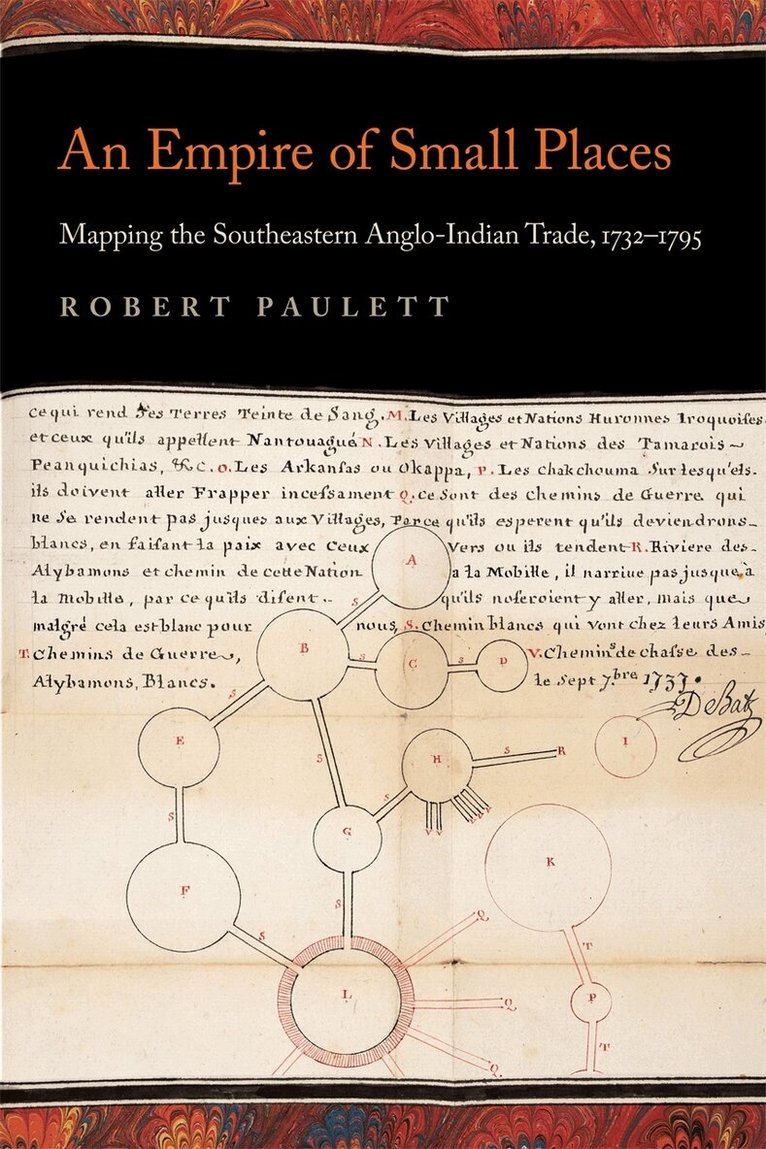 An Empire of Small Places
Mapping the Southeastern Anglo-Indian Trade, 1732–1795
ROBERT PAULETT
ce qui rend Ses Terres Teinte de Sang. M. Les Villages et Nations Huronnes Iroquoises
et ceux qu'ils appellent Nantouagué N. Les Villages et Nations des Tamarois ~
Peanquichias, &c. O. Les Arkansas ou Okappa, P. Les chakchouma Sur lesqu'els-
ils doivent aller Frapper incessament Q. ce Sont des chemins de Guerre qui
ne Se rendent pas jusques aux Villages, Parce qu'ils esperent qu'ils deviendrons_
blancs, en faisant la paix avec Ceux Vers ou ils tendent R. Riviere des-
Alybamons et chemin de cette Nation a la Mobille, il narrive pas jusque à
la Mobille, par ce qu'ils disent.. qu'ils noseroient y aller, mais que
malgré cela est blanc pour nous, S. Chemin blancs qui vont chez leurs Amis
T. Chemins de Guerre, V. Chemins de chasse des-
Alybamons, Blancs. le Sept 7.bre 1737.
De Batz
A
S
B
S
C
S
D
S
E
S
H
S
R
I
S
S
G
V V
S
F
S
K
S
L
Q
T
Q
P
Q
T